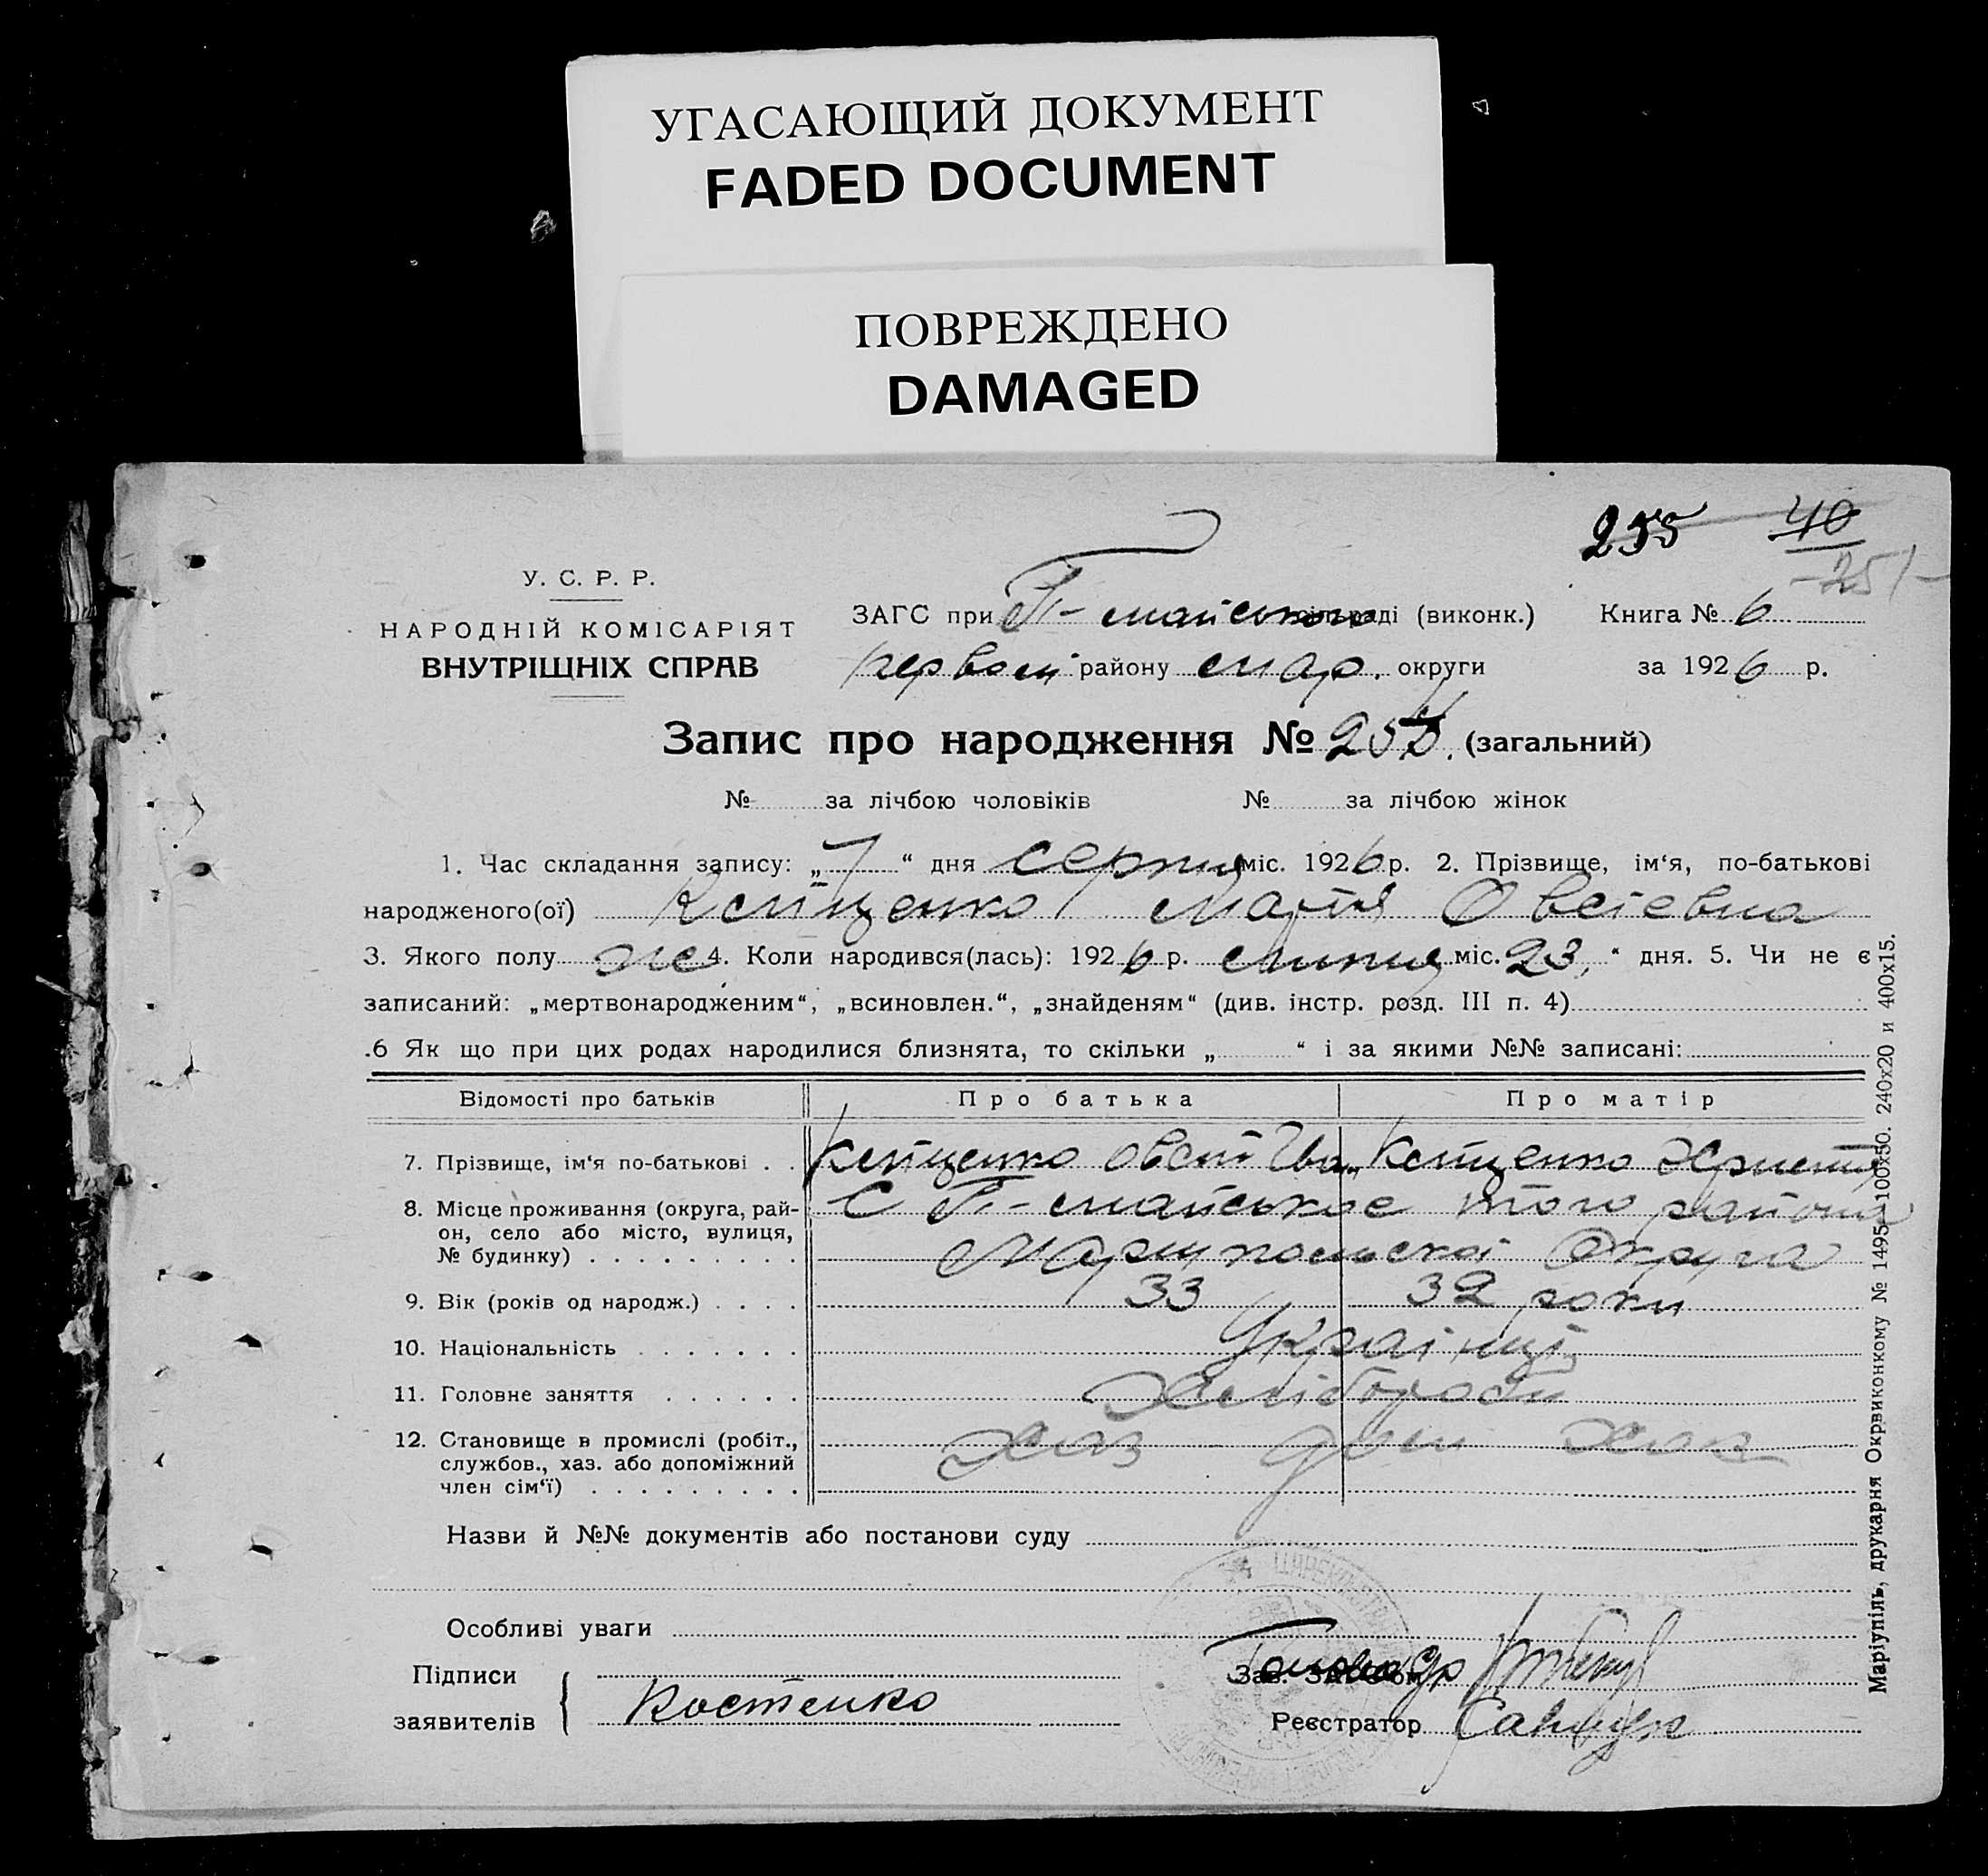 УГАСАЮЩИЙ ДОКУМЕНТ
FADED DOCUMENT
ПОВРЕЖДЕНО
DAMAGED
255 40
-251-
У. С. Р. Р.
НАРОДНІЙ КОМІСАРІЯТ
ВНУТРІШНІХ СПРАВ
ЗАГС при П-майському раді (виконк.) Книга № 6
Первом району мар. округи за 1926 р.
Запис про народження № 25 (загальний)
№ за лічбою чоловіків № за лічбою жінок
1. Час складання запису: „7“ дня серпня міс. 1926 р. 2. Прізвище, ім‘я, по-батькові
народженого(ої) Марія Овсіевна
3. Якого полу же 4. Коли народився(лась): 1926 р. липня міс. 23, “ дня. 5. Чи не є
записаний: „мертвонародженим“, „всиновлен.“, „знайденям“ (див. інстр. розд. III п. 4)
.6 Як що при цих родах народилися близнята, то скільки „ “ і за якими №№ записані:
Відомості про батьків Про батька Про матір
7. Прізвище, ім‘я по-батькові . . Овсій Ива
8. Місце проживання (округа, рай-
он, село або місто, вулиця,
№ будинку) . . . . . . . . .
С П-майськое того района
Маріупольскої Округа
9. Вік (років од народж.) . . . . 33 32 роки
10. Національність . . . . . . . Украінці
11. Головне заняття . . . . . . Хлібороби
12. Становище в промислі (робіт.,
службов., хаз. або допоміжний
член сім‘ї) . . . . . . . . .
хаз дом хаз
Назви й №№ документів або постанови суду
Особливі уваги
Підписи
заявителів
Костенко
Зав. ЗАГСом
Голова
Реєстратор
Маріупіль, друкарня Окрвиконкому № 1495—100х50. 240х20 и 400х15.